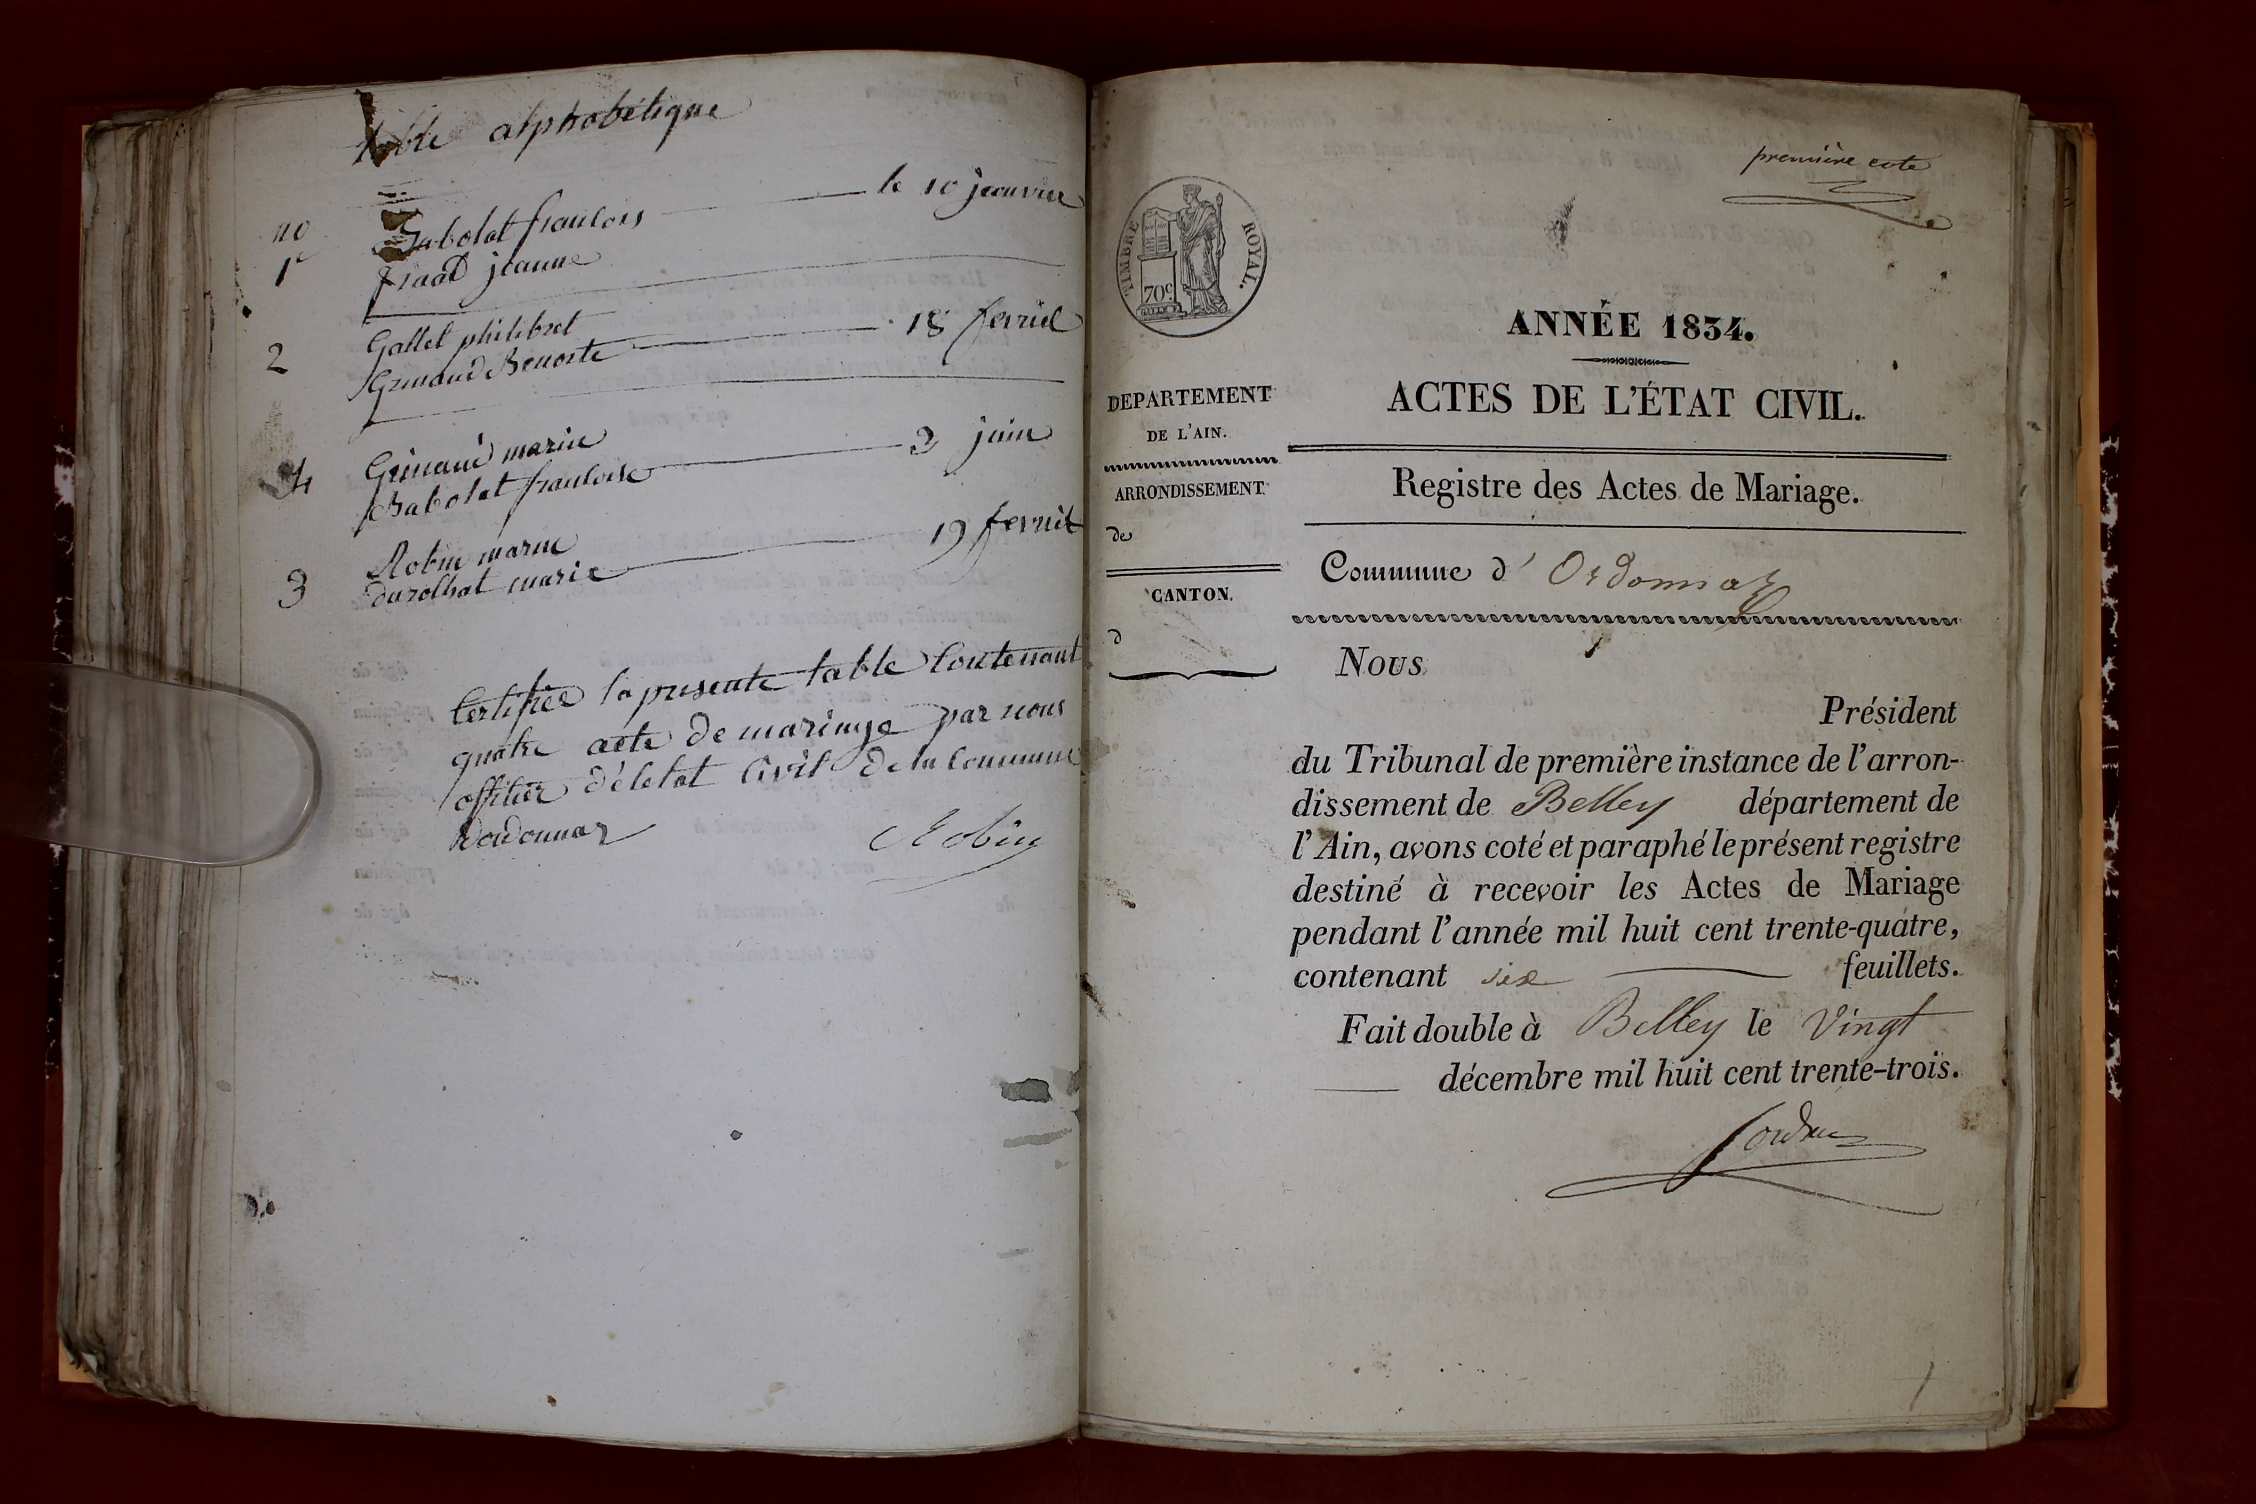 table alphabétique
no
1e
Babolat francois le 10 janvier
jeanne
2
Gallet philibert
Grinand Benoite 18 fevrie
4
Grinand marie
Babolat francoise 2 juin
3
Robin marin
durochat marie 19 fevrie
Certifiée la presente table Contenant
quatre acte de mariage par nous
officier d'életat Civil de la Commune
dordonnaz
Robin
première cote
TIMBRE ROYAL.
70c
ANNÉE 1834.
ACTES DE L'ÉTAT CIVIL.
DEPARTEMENT
DE L'AIN.
ARRONDISSEMENT
de
CANTON.
d
Registre des Actes de Mariage.
Commune d' Ordonnaz
Nous
Président
du Tribunal de première instance de l'arron-
dissement de Belley département de
l'Ain, avons coté et paraphé le présent registre
destiné à recevoir les Actes de Mariage
pendant l'année mil huit cent trente-quatre,
contenant six feuillets.
Fait double à Belley le Vingt
décembre mil huit cent trente-trois.